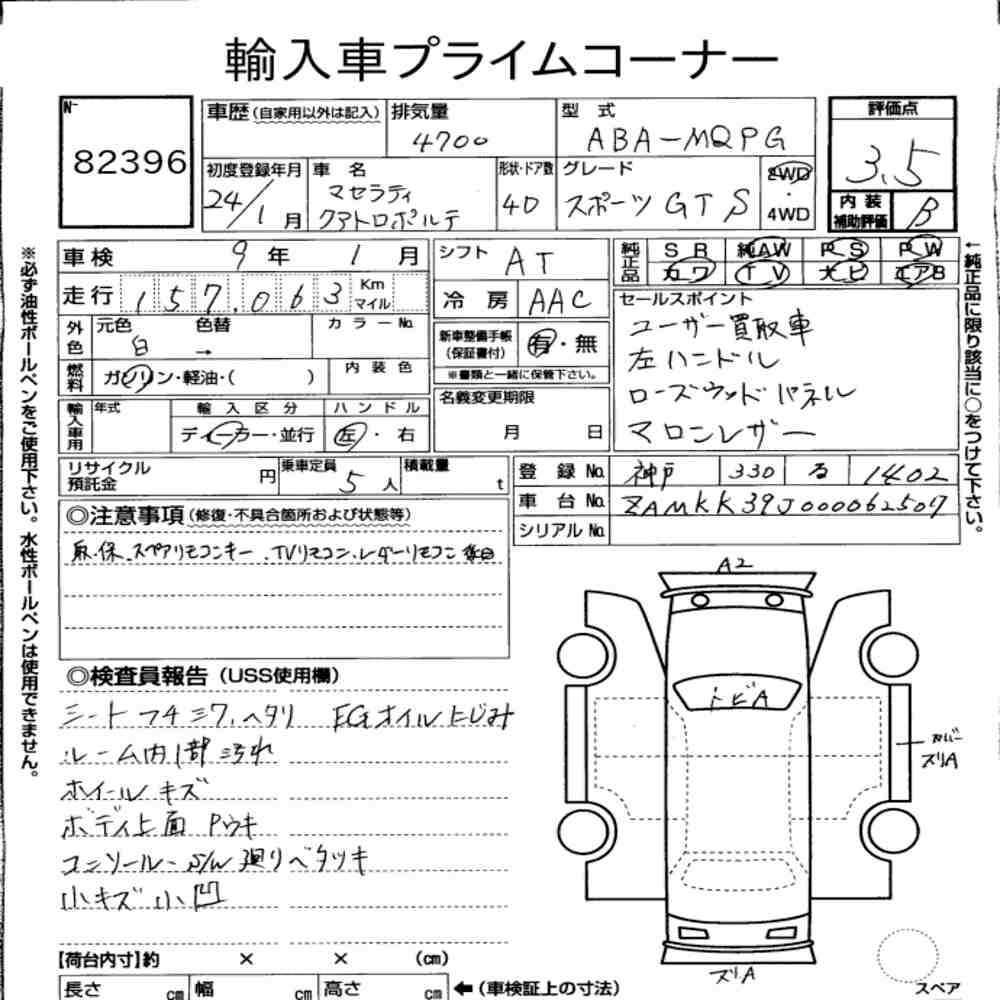 輸入車プライムコーナー
N-
82396
車歴(自家用以外は記入) 排気量 型式 評価点
4700 ABA-MQPG 3.5
初度登録年月 車名 形状・ドア数 グレード 2WD・4WD
24/1月 マセラティ クアトロポルテ 4D スポーツ GT S
内装補助評価 B
車検 9年 1月 シフト AT
純正品 SR 純AW PS PW
カワ TV ナビ エアB
走行 157,063 Km マイル 冷房 AAC
セールスポイント
ユーザー買取車
左ハンドル
ローズウッドパネル
マロンレザー
外色 元色 白 → 色替 カラーNo.
新車整備手帳(保証書付) 有・無
※書類と一緒に保管下さい。
燃料 ガソリン・軽油・( ) 内装色
名義変更期限 月 日
輸入車用 年式 輸入区分 ハンドル
ディーラー・並行 左・右
リサイクル預託金 円 乗車定員 5人 積載量 t
登録No. 神戸 330 る 1402
車台No. ZAMKK39J000062507
シリアルNo.
◎注意事項(修復・不具合箇所および状態等)
取・保、スペアリモコンキー、TVリモコン、レーダーリモコン
◎検査員報告(USS使用欄)
シートフチミワ、ヘタリ EGオイルにじみ
ルーム内1部汚れ
ホイールキズ
ボディ上面 Pウキ
コンソール S/W廻りベタツキ
小キズ小凹
A2
トビA
カバー
ズリA
ズリA
スペア
【荷台内寸】約 × × (cm)
長さ cm 幅 cm 高さ cm ←(車検証上の寸法)
※必ず油性ボールペンをご使用下さい。水性ボールペンは使用できません。
←純正品に限り該当に○をつけて下さい。